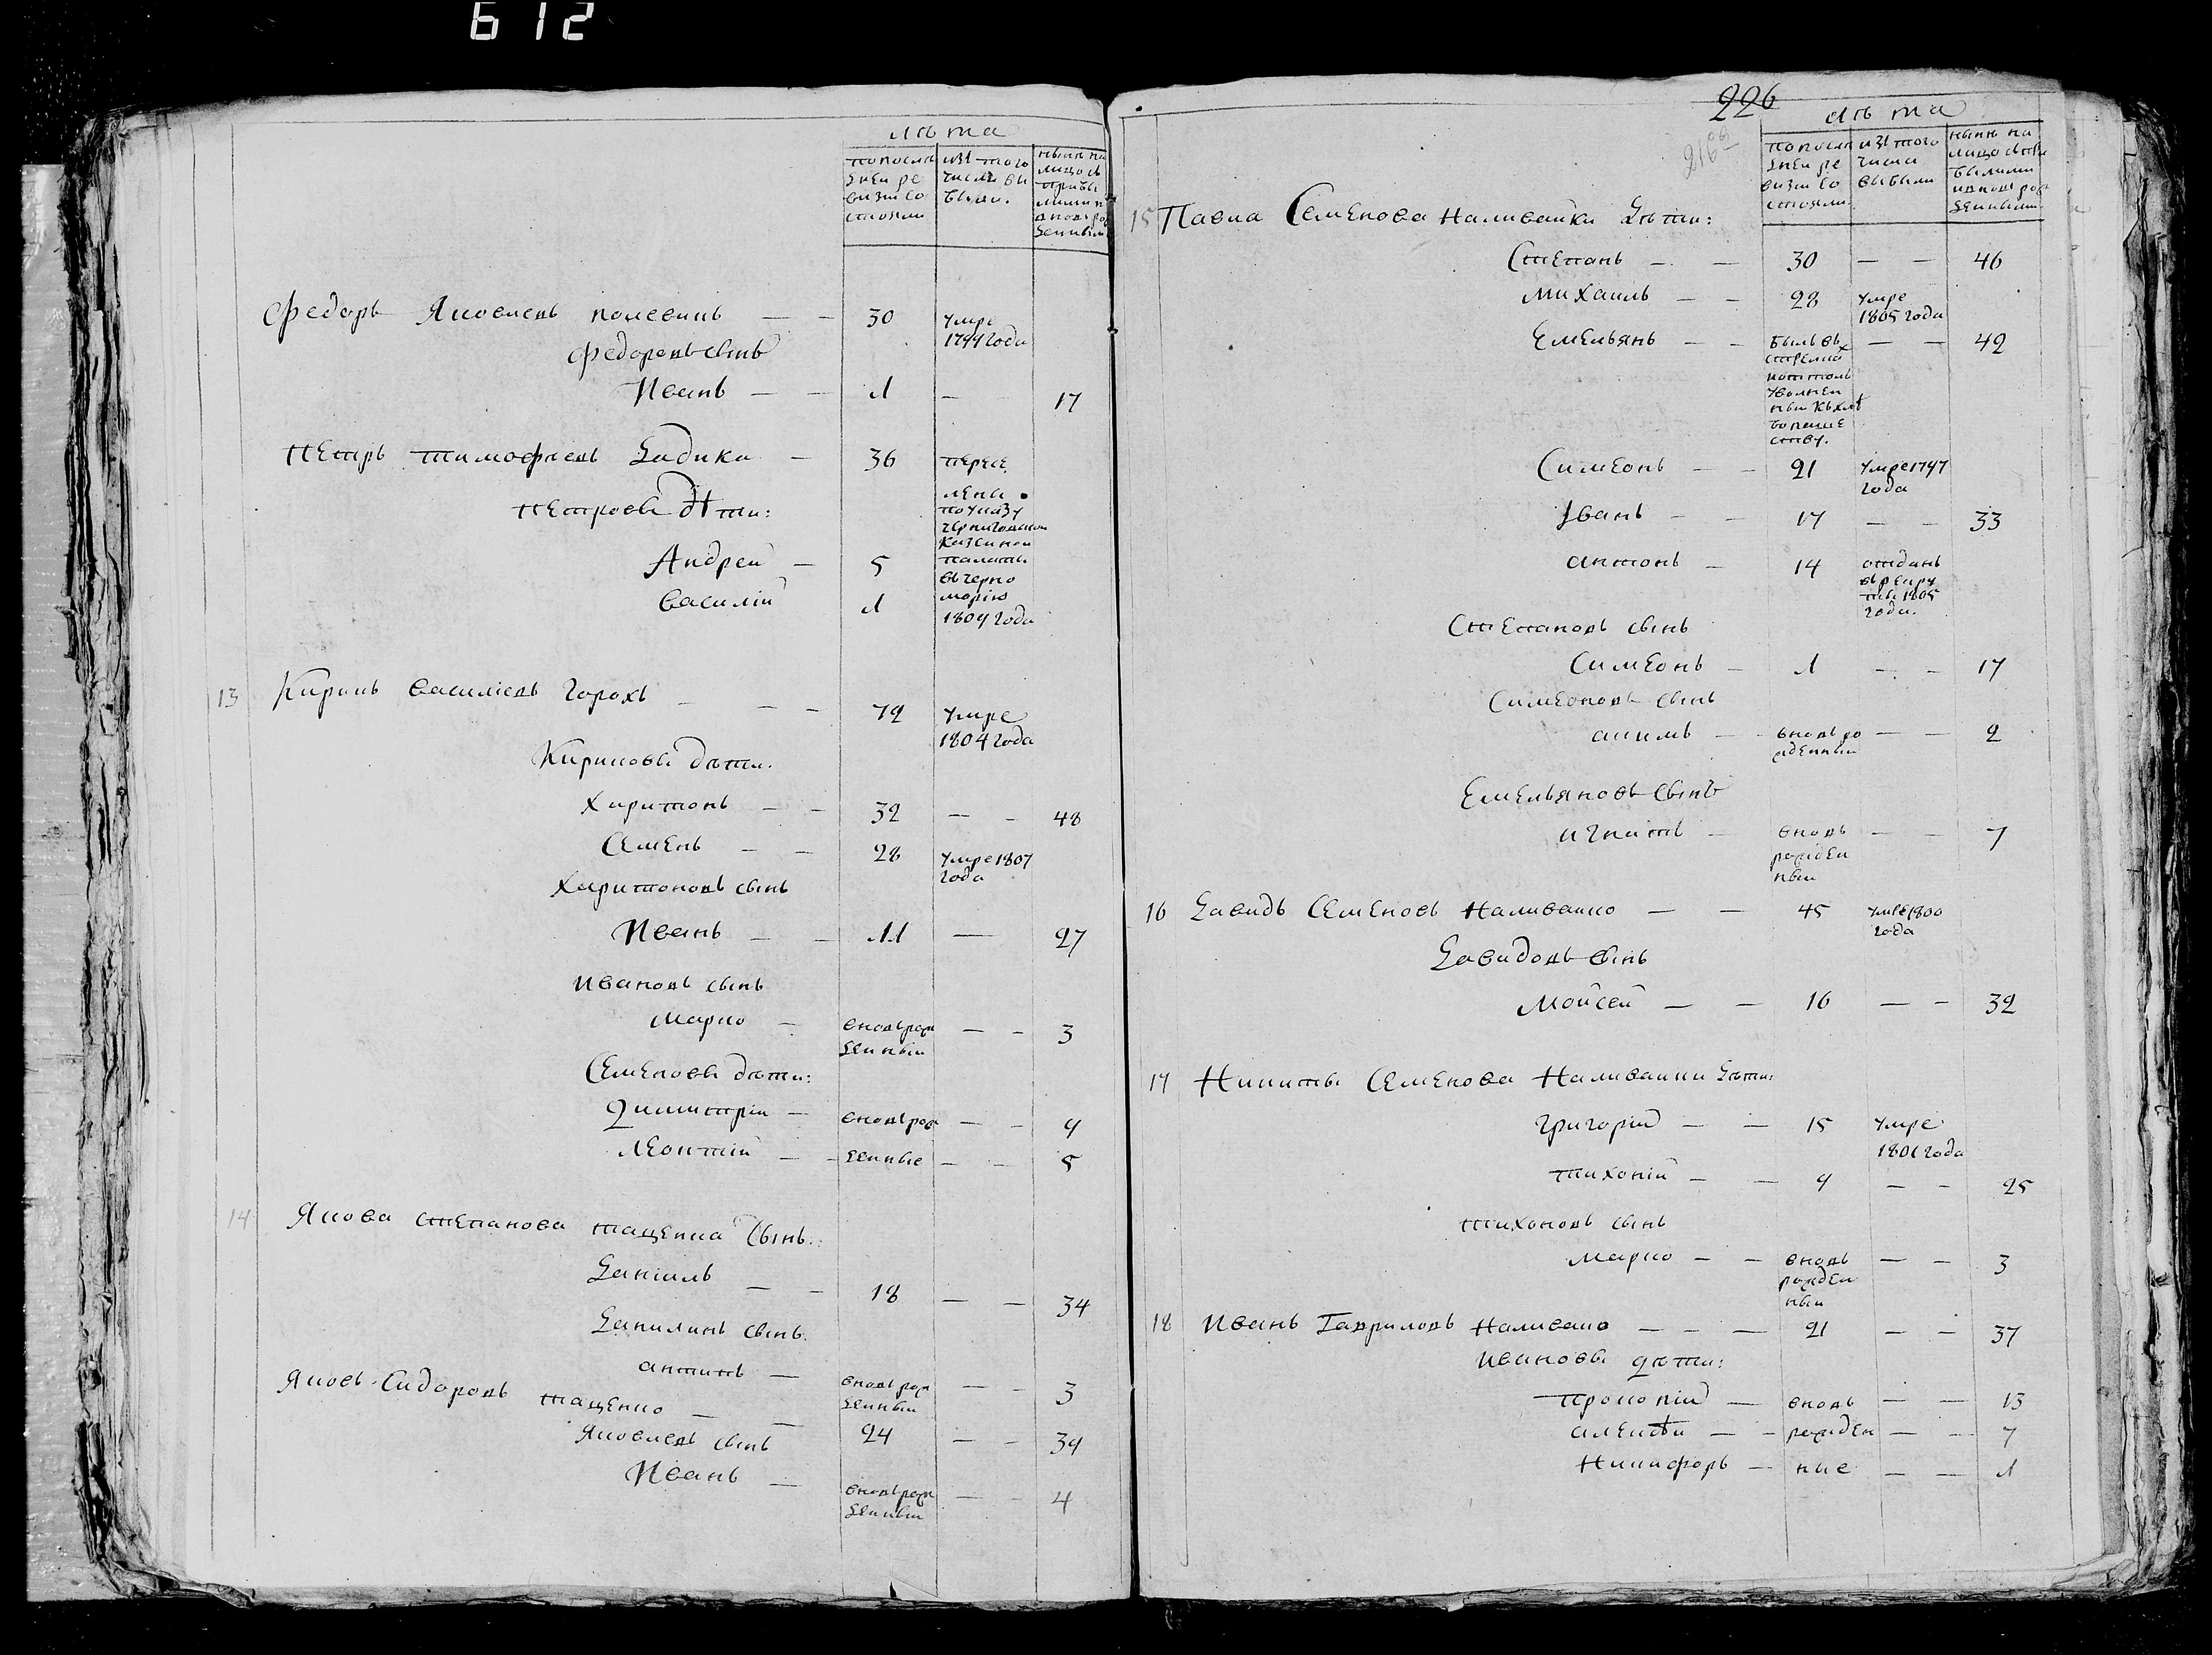 612
лѣта
по послѣдней ревизіи состояли
изъ того числа выбыли.
нынѣ на лицо съ прибылыми и вновь рожденными
Федоръ Яковлевъ — — 30 умре 1799 года
Федоровъ сынъ
Иванъ — — 1 — 17
Петръ Тимофѣевъ — 36 переселены по указу черниговской казенной палаты въ черноморію 1809 года
Петровы дѣти:
Андрей — 5
Василій 1
13 Кирикъ Василіевъ Горохъ — — — 72 умре 1804 года
Кириковы дѣти.
Харитонъ — — 32 — — 48
Семенъ — — 28 умре 1807 года
Харитоновъ сынъ
Иванъ — — 11 — 27
Ивановъ сынъ
Марко — вновь рожденный — — 3
Семеновы дѣти:
Димитрій — вновь рож — — 9
Леонтій — — денные — — 5
14 Якова Степанова Тащенка сынъ:
Даніилъ — — 18 — — 34
Даниловъ сынъ.
Антипъ — вновь рожденный — — 3
Яковъ Сидоровъ Тащенко — — 24 — — 39
Яковлевъ сынъ
Иванъ — вновь рожденный — — 4
226
216
лѣта
по послѣдней ревизіи состояли
изъ того числа выбыли
нынѣ на лицо съ прибылыми и вновь рожденными
15 Павла Семенова Наливайки дѣти:
Степанъ — — 30 — — 46
Михаилъ — — 28 умре 1805 года
Емельянъ — — былъ въ стрелкахъ уволненный къ хлѣбопашеству. — — 42
Симеонъ — — 21 умре 1797 года
Іванъ — — 17 — — 33
Антонъ — 14 отданъ въ рекруты 1805 года.
Степановъ сынъ
Симеонъ — 1 — — 17
Симеоновъ сынъ
Акимъ — вновь рожденный — — 2
Емельяновъ сынъ
Игнатъ — вновь рожденный — — 7
16 Давидъ Семеновъ Наливайко — — 45 умре 1800 года
Давидовъ сынъ
Мойсей — — 16 — — 32
17 Никиты Семенова Наливайки дѣти:
Григорій — — 15 умре 1801 года
Тихоній — — 9 — — 25
Тихоновъ сынъ
Марко — — вновь рожденный — — 3
18 Иванъ Гавриловъ Наливайко — — — 21 — — 37
Ивановы дѣти:
Прокопій — вновь — — 13
Алексѣй — — рожден — — 7
Никифоръ — ные — — 1